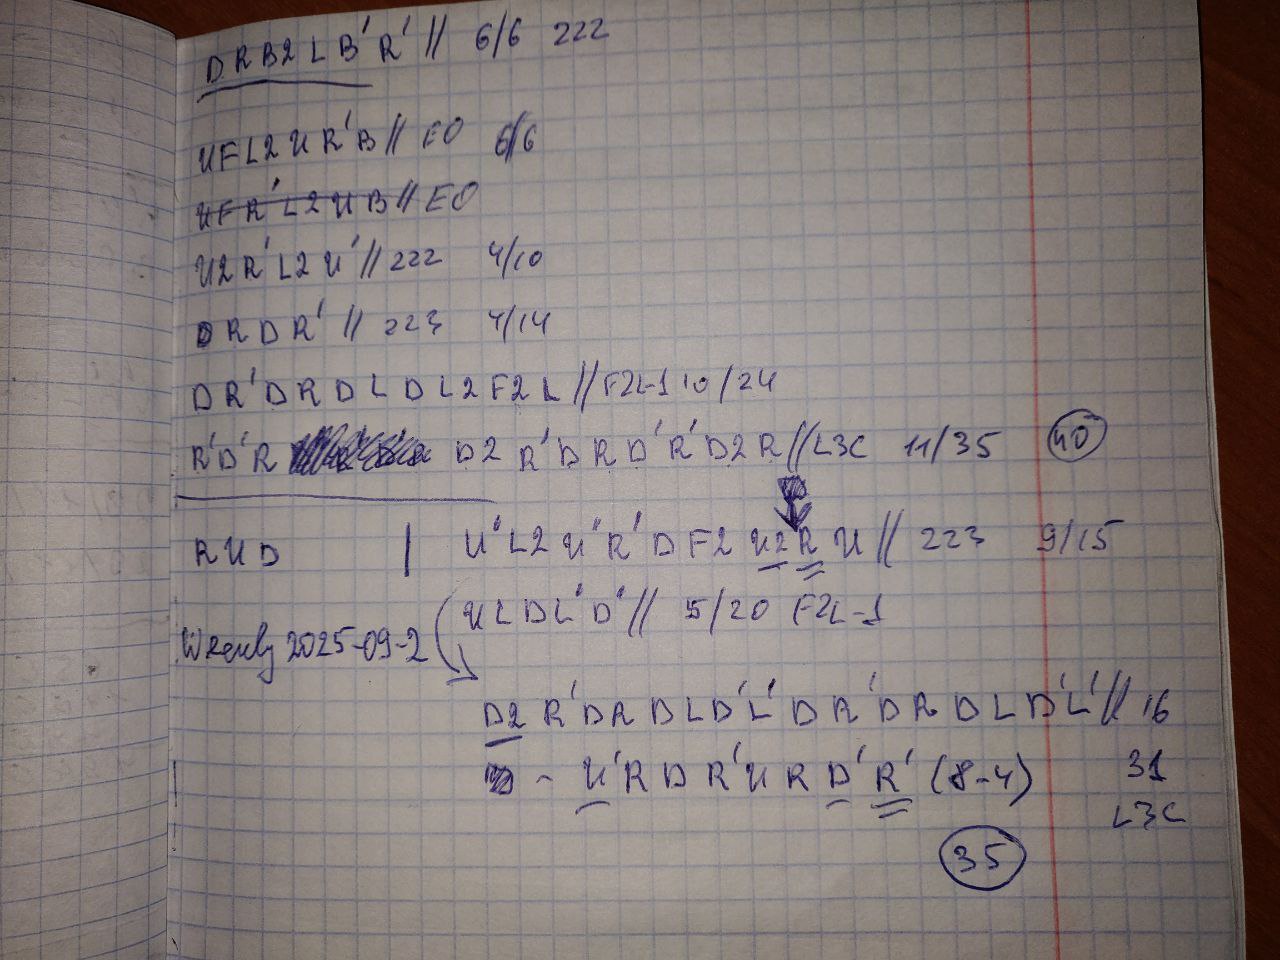 D R B2 L B' R' // 6/6 222
U F L2 U R' B // EO 6/6
U F R' L2 U B // EO
U2 R' L2 U' // 222 4/10
D R D R' // 223 4/14
D R' D R D L D L2 F2 L // F2L-1 10/24
R' D' R D2 R' D R D' R' D2 R // L3C 11/35 40
R U D | U' L2 U' R' D F2 U2 R U // 223 9/15
U L D L' D' // 5/20 F2L-1
Weekly 2025-09-2
D2 R' D R D L D' L' D R' D R D L D' L' // 16
- U' R D R' U R D' R' (8-4) 31
L3C
35